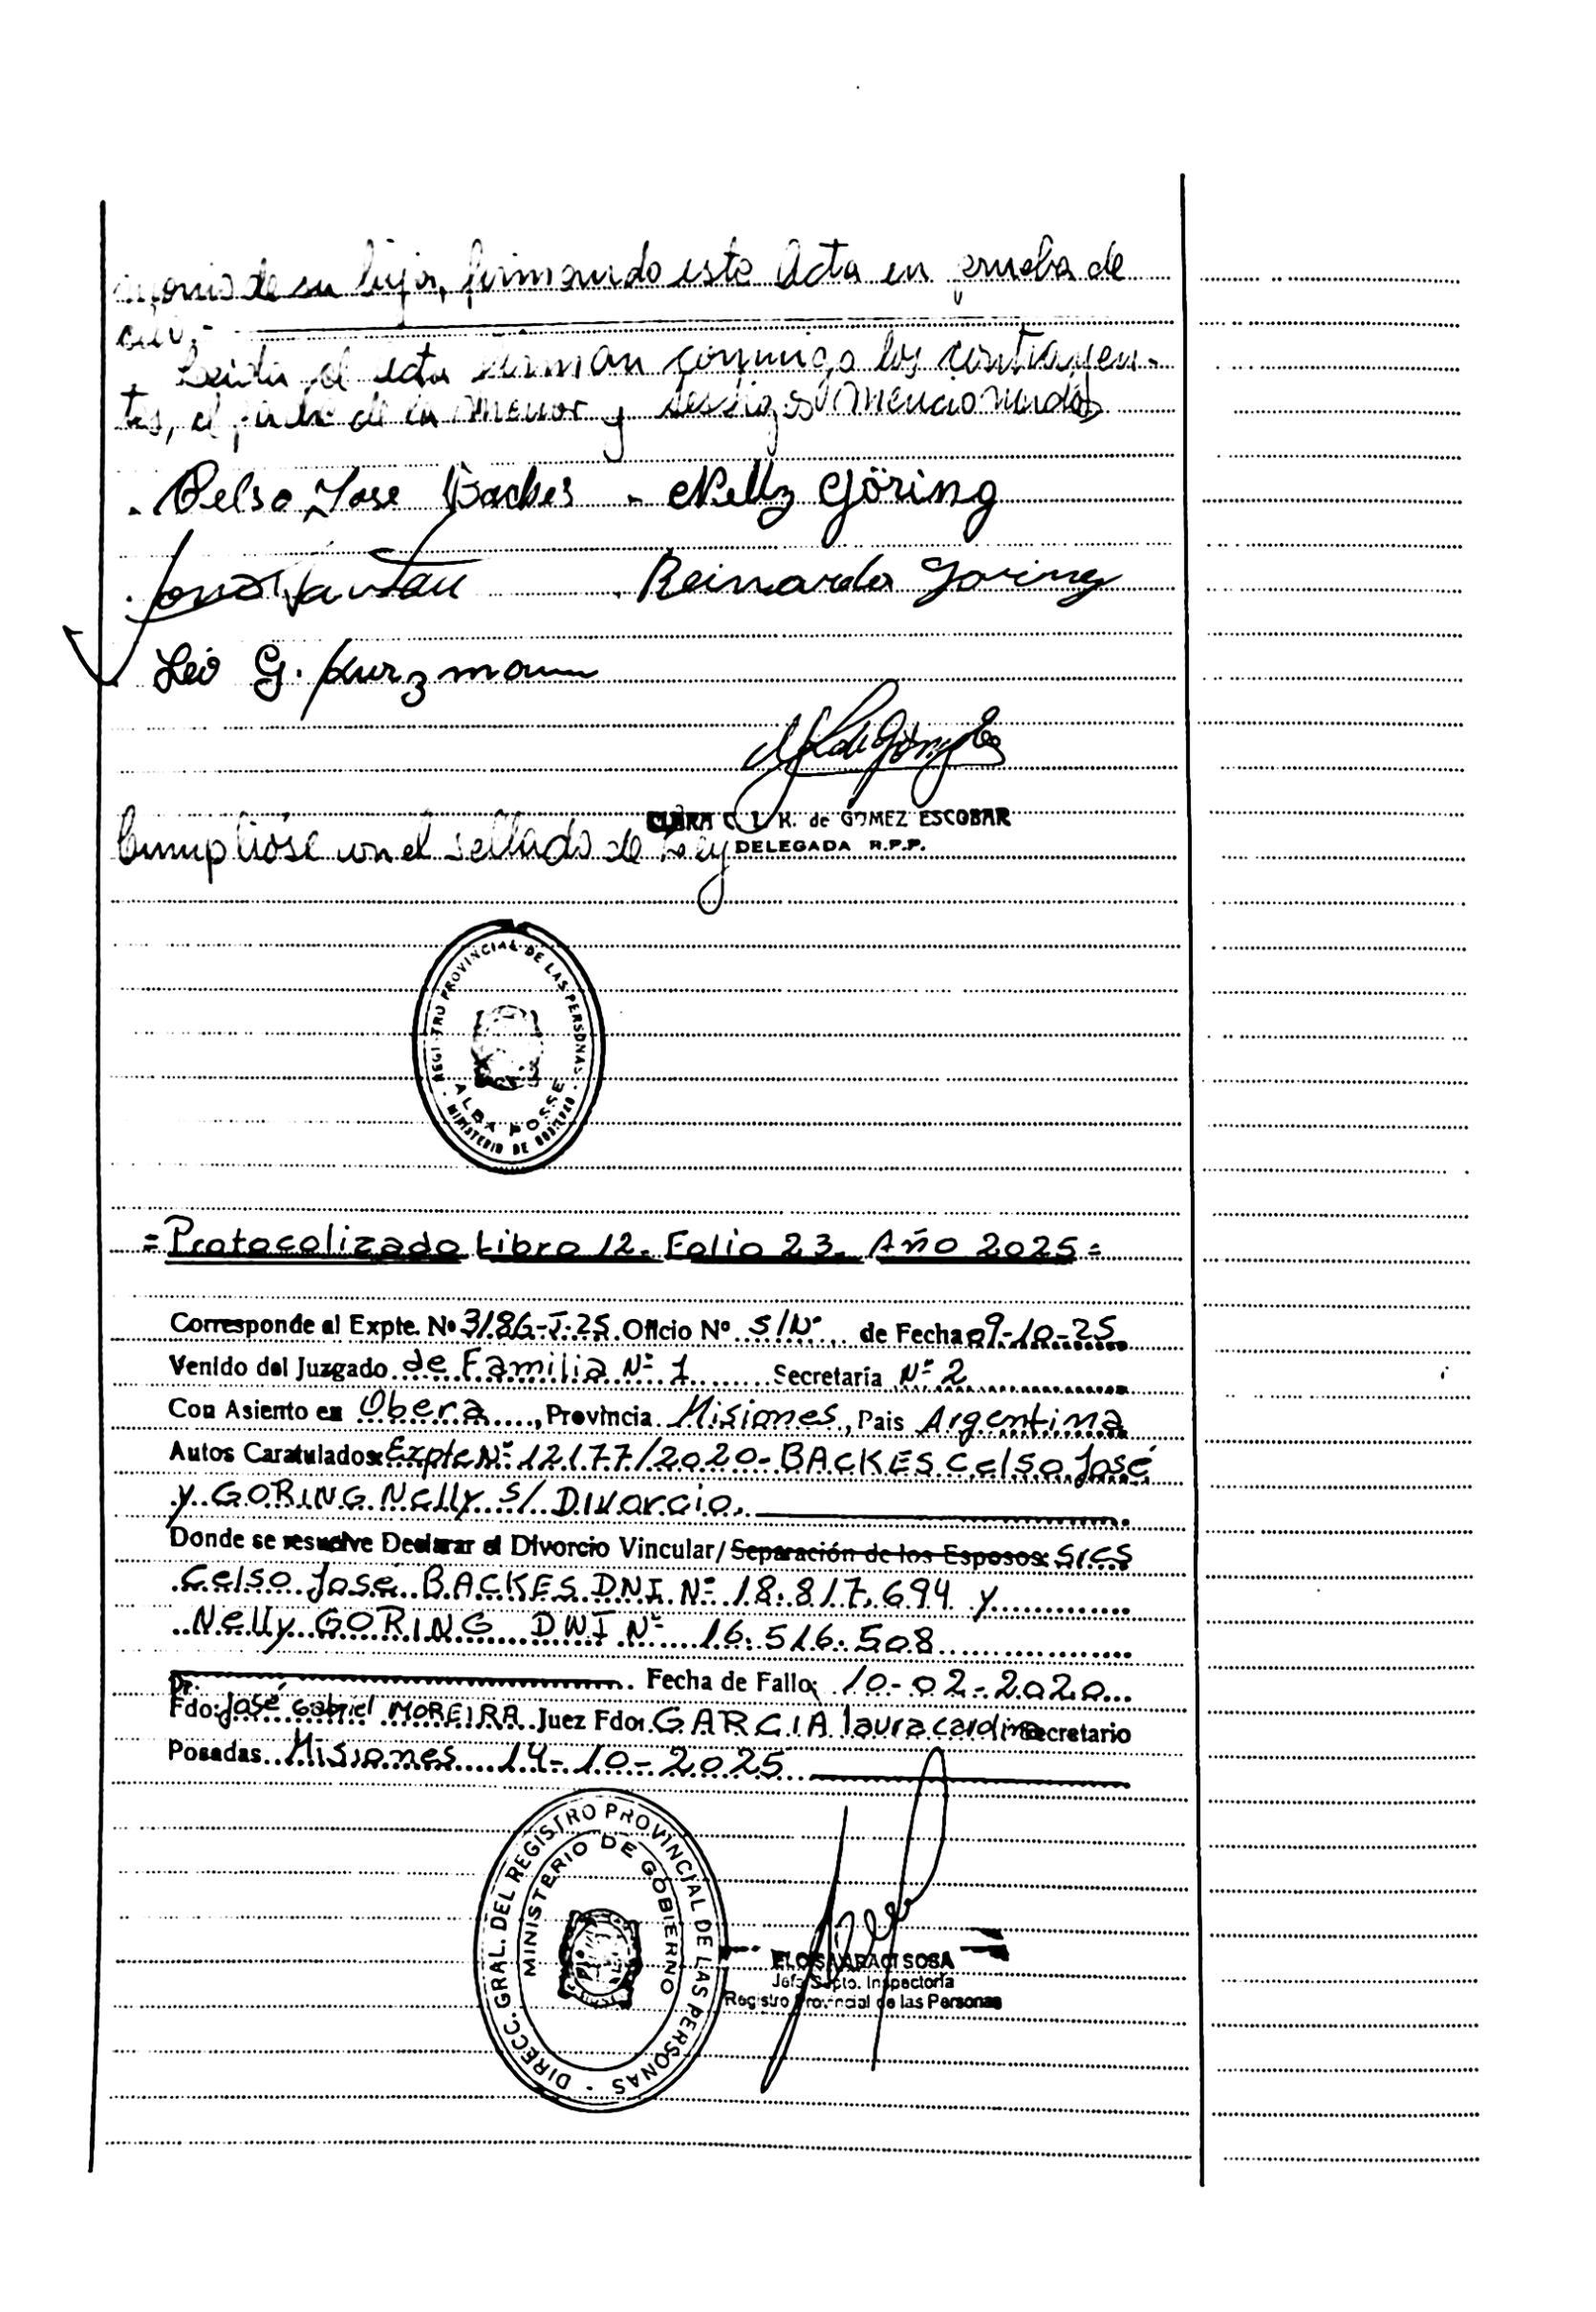 monio de su hija, firmando este Acta en prueba de
ello.-
Leida el acta firman conmigo los contrayen-
tes, el padre de la menor y testigos mencionados
. Celso Jose Backes - Nelly Göring
. Reinardo Goring
Leo G. Kurzmann
CLARA C. I. K. de GOMEZ ESCOBAR
DELEGADA R.P.P.
Cumplióse con el sellado de Ley
REGISTRO PROVINCIAL DE LAS PERSONAS
ALBA POSSE
MINISTERIO DE GOBIERNO
= Protocolizado Libro 12. Folio 23. Año 2025=
Corresponde al Expte. Nº 3186-J-25. Oficio Nº S/Nº de Fecha 09-10-25
Venido del Juzgado de Familia Nº 1 Secretaría Nº 2
Con Asiento en Obera, Provincia Misiones, Pais Argentina
Autos Caratulados: Expte Nº 12177/2020- BACKES Celso José
y GORING Nelly S/ Divorcio.
Donde se resuelve Declarar el Divorcio Vincular/ Separación de los Esposos: Sres
Celso José BACKES DNI Nº 18.817.694 y
Nelly GORING DNI Nº 16.516.508
Fecha de Fallo: 10-02-2020
Fdo: Dr. José Gabriel MOREIRA Juez Fdo: GARCIA laura carolina Secretario
Posadas Misiones 14-10-2025
DIRECC. GRAL. DEL REGISTRO PROVINCIAL DE LAS PERSONAS
MINISTERIO DE GOBIERNO
ELOISA ARACI SOSA
Jefa Dpto. Inspectoría
Registro Provincial de las Personas